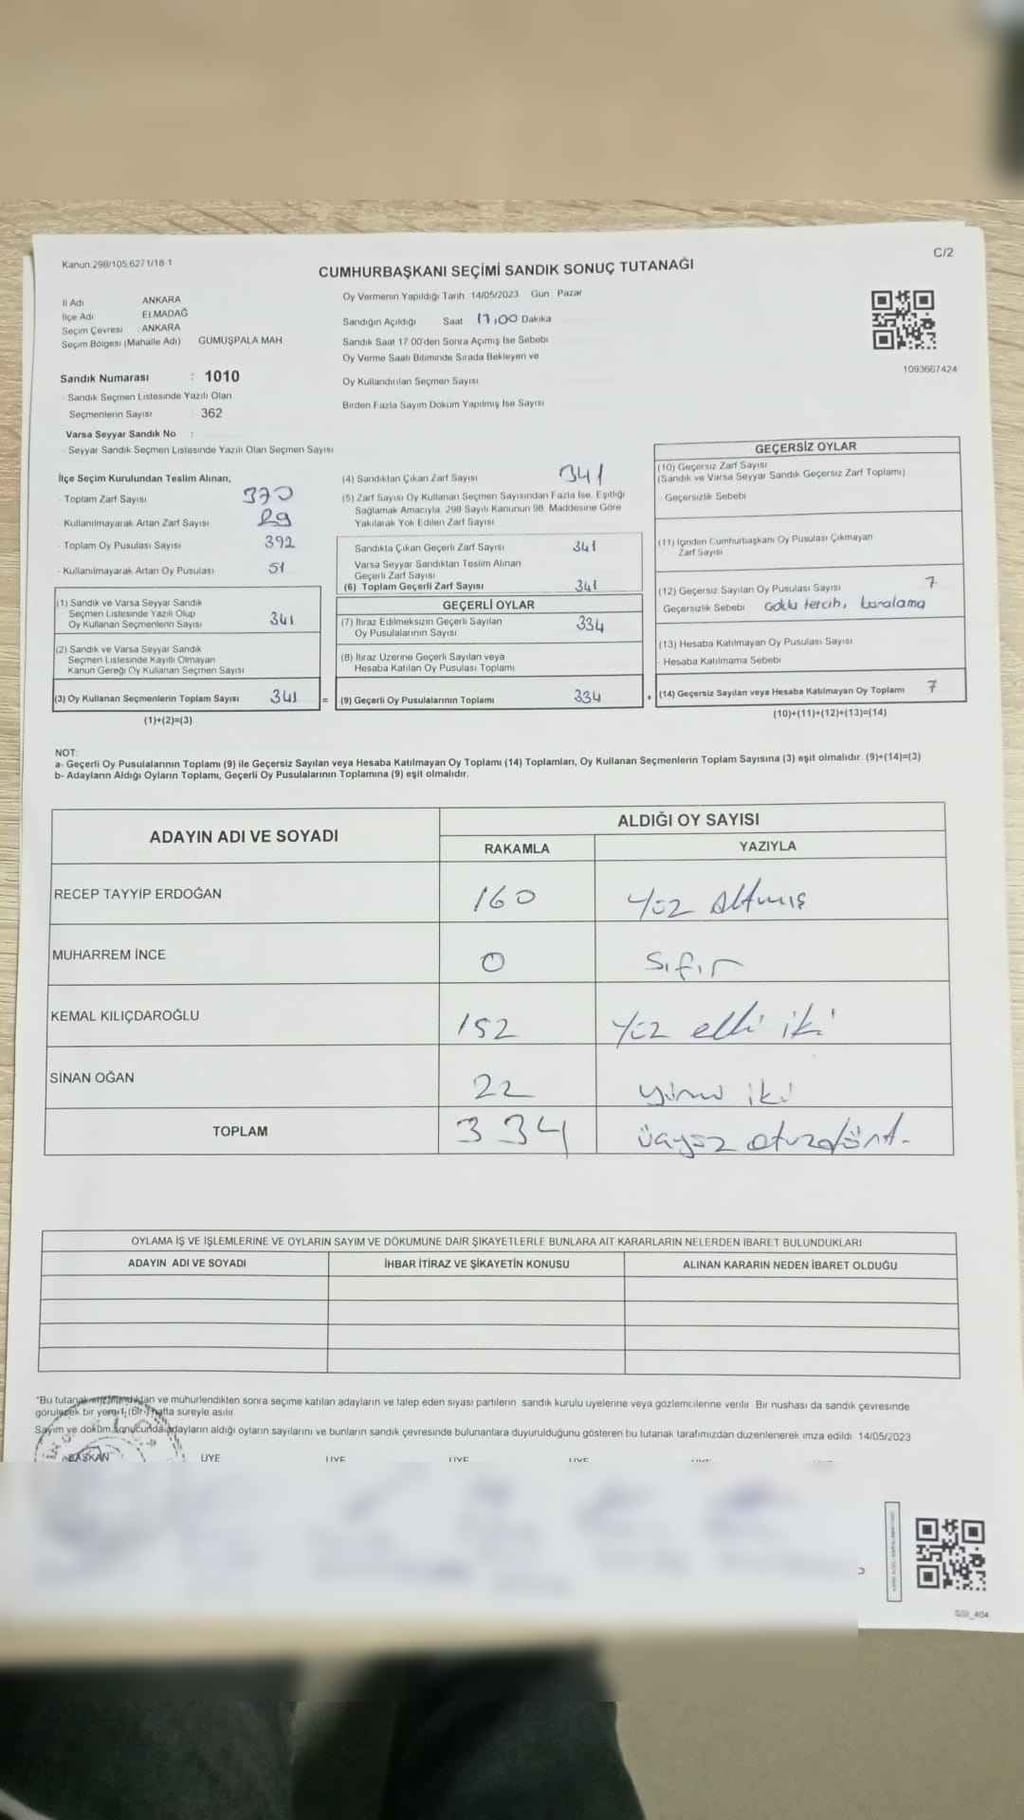 Kanun:298/105,6271/18-1
C/2
CUMHURBAŞKANI SEÇİMİ SANDIK SONUÇ TUTANAĞI
İl Adı ANKARA
İlçe Adı ELMADAĞ
Seçim Çevresi : ANKARA
Seçim Bölgesi (Mahalle Adı) GÜMÜŞPALA MAH
Sandık Numarası : 1010
Sandık Seçmen Listesinde Yazılı Olan
Seçmenlerin Sayısı 362
Varsa Seyyar Sandık No :
Seyyar Sandık Seçmen Listesinde Yazılı Olan Seçmen Sayısı
Oy Vermenin Yapıldığı Tarih 14/05/2023 Gün Pazar
Sandığın Açıldığı Saat 17,00 Dakika
Sandık Saat 17.00'den Sonra Açımış İse Sebebi
Oy Verme Saati Bitiminde Sırada Bekleyen ve
Oy Kullandırılan Seçmen Sayısı
Birden Fazla Sayım Döküm Yapılmış İse Sayısı
1093667424
İlçe Seçim Kurulundan Teslim Alınan,
Toplam Zarf Sayısı 370
Kullanılmayarak Artan Zarf Sayısı 29
Toplam Oy Pusulası Sayısı 392
Kullanılmayarak Artan Oy Pusulası 51
(1) Sandık ve Varsa Seyyar Sandık
Seçmen Listesinde Yazılı Olup
Oy Kullanan Seçmenlerin Sayısı 341
(2) Sandık ve Varsa Seyyar Sandık
Seçmen Listesinde Kayıtlı Olmayan
Kanun Gereği Oy Kullanan Seçmen Sayısı
(3) Oy Kullanan Seçmenlerin Toplam Sayısı 341 =
(1)+(2)=(3)
(4) Sandıktan Çıkan Zarf Sayısı 341
(5) Zarf Sayısı Oy Kullanan Seçmen Sayısından Fazla İse, Eşitliği
Sağlamak Amacıyla, 298 Sayılı Kanunun 98. Maddesine Göre
Yakılarak Yok Edilen Zarf Sayısı
Sandıkta Çıkan Geçerli Zarf Sayısı 341
Varsa Seyyar Sandıktan Teslim Alınan
Geçerli Zarf Sayısı
(6) Toplam Geçerli Zarf Sayısı 341
GEÇERLİ OYLAR
(7) İtiraz Edilmeksizin Geçerli Sayılan
Oy Pusulalarının Sayısı 334
(8) İtiraz Üzerine Geçerli Sayılan veya
Hesaba Katılan Oy Pusulası Toplamı
(9) Geçerli Oy Pusulalarının Toplamı 334 +
GEÇERSİZ OYLAR
(10) Geçersiz Zarf Sayısı
(Sandık ve Varsa Seyyar Sandık Geçersiz Zarf Toplamı)
Geçersizlik Sebebi
(11) İçinden Cumhurbaşkanı Oy Pusulası Çıkmayan
Zarf Sayısı
(12) Geçersiz Sayılan Oy Pusulası Sayısı 7
Geçersizlik Sebebi Çoklu tercih, karalama
(13) Hesaba Katılmayan Oy Pusulası Sayısı
Hesaba Katılmama Sebebi
(14) Geçersiz Sayılan veya Hesaba Katılmayan Oy Toplamı 7
(10)+(11)+(12)+(13)=(14)
NOT:
a- Geçerli Oy Pusulalarının Toplamı (9) ile Geçersiz Sayılan veya Hesaba Katılmayan Oy Toplamı (14) Toplamları, Oy Kullanan Seçmenlerin Toplam Sayısına (3) eşit olmalıdır. (9)+(14)=(3)
b- Adayların Aldığı Oyların Toplamı, Geçerli Oy Pusulalarının Toplamına (9) eşit olmalıdır.
ADAYIN ADI VE SOYADI
ALDIĞI OY SAYISI
RAKAMLA YAZIYLA
RECEP TAYYİP ERDOĞAN 160 Yüz Altmış
MUHARREM İNCE 0 Sıfır
KEMAL KILIÇDAROĞLU 152 Yüz elli iki
SİNAN OĞAN 22 yirmi iki
TOPLAM 334 üçyüz otuzdört.
OYLAMA İŞ VE İŞLEMLERİNE VE OYLARIN SAYIM VE DÖKÜMÜNE DAİR ŞİKAYETLERLE BUNLARA AİT KARARLARIN NELERDEN İBARET BULUNDUKLARI
ADAYIN ADI VE SOYADI İHBAR İTİRAZ VE ŞİKAYETİN KONUSU ALINAN KARARIN NEDEN İBARET OLDUĞU
"Bu tutanak ve mühürlendikten sonra seçime katılan adayların ve talep eden siyasi partilerin sandık kurulu üyelerine veya gözlemcilerine verilir. Bir nüshası da sandık çevresinde
görülecek bir yere 1 (bir) hafta süreyle asılır.
Sayım ve döküm sonucunda adayların aldığı oyların sayılarını ve bunların sandık çevresinde bulunanlara duyurulduğunu gösteren bu tutanak tarafımızdan düzenlenerek imza edildi. 14/05/2023
BAŞKAN ÜYE ÜYE ÜYE ÜYE